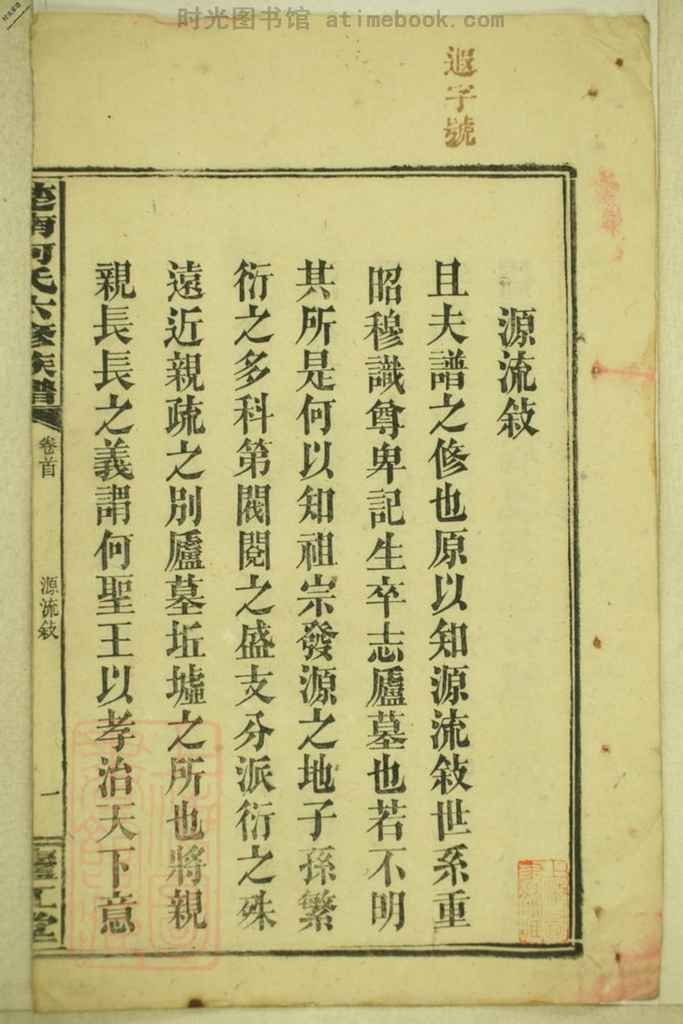 时光图书馆 atimebook.com
遐字號
源流敍
且夫譜之修也原以知源流敍世系重
昭穆識尊卑記生卒志廬墓也若不明
其所是何以知祖宗發源之地子孫繁
衍之多科第閥閱之盛支分派衍之殊
遠近親疏之別廬墓坵墟之所也將親
親長長之義謂何聖王以孝治天下意
楚南何氏六修族譜
卷首
源流敍
一
廬江堂